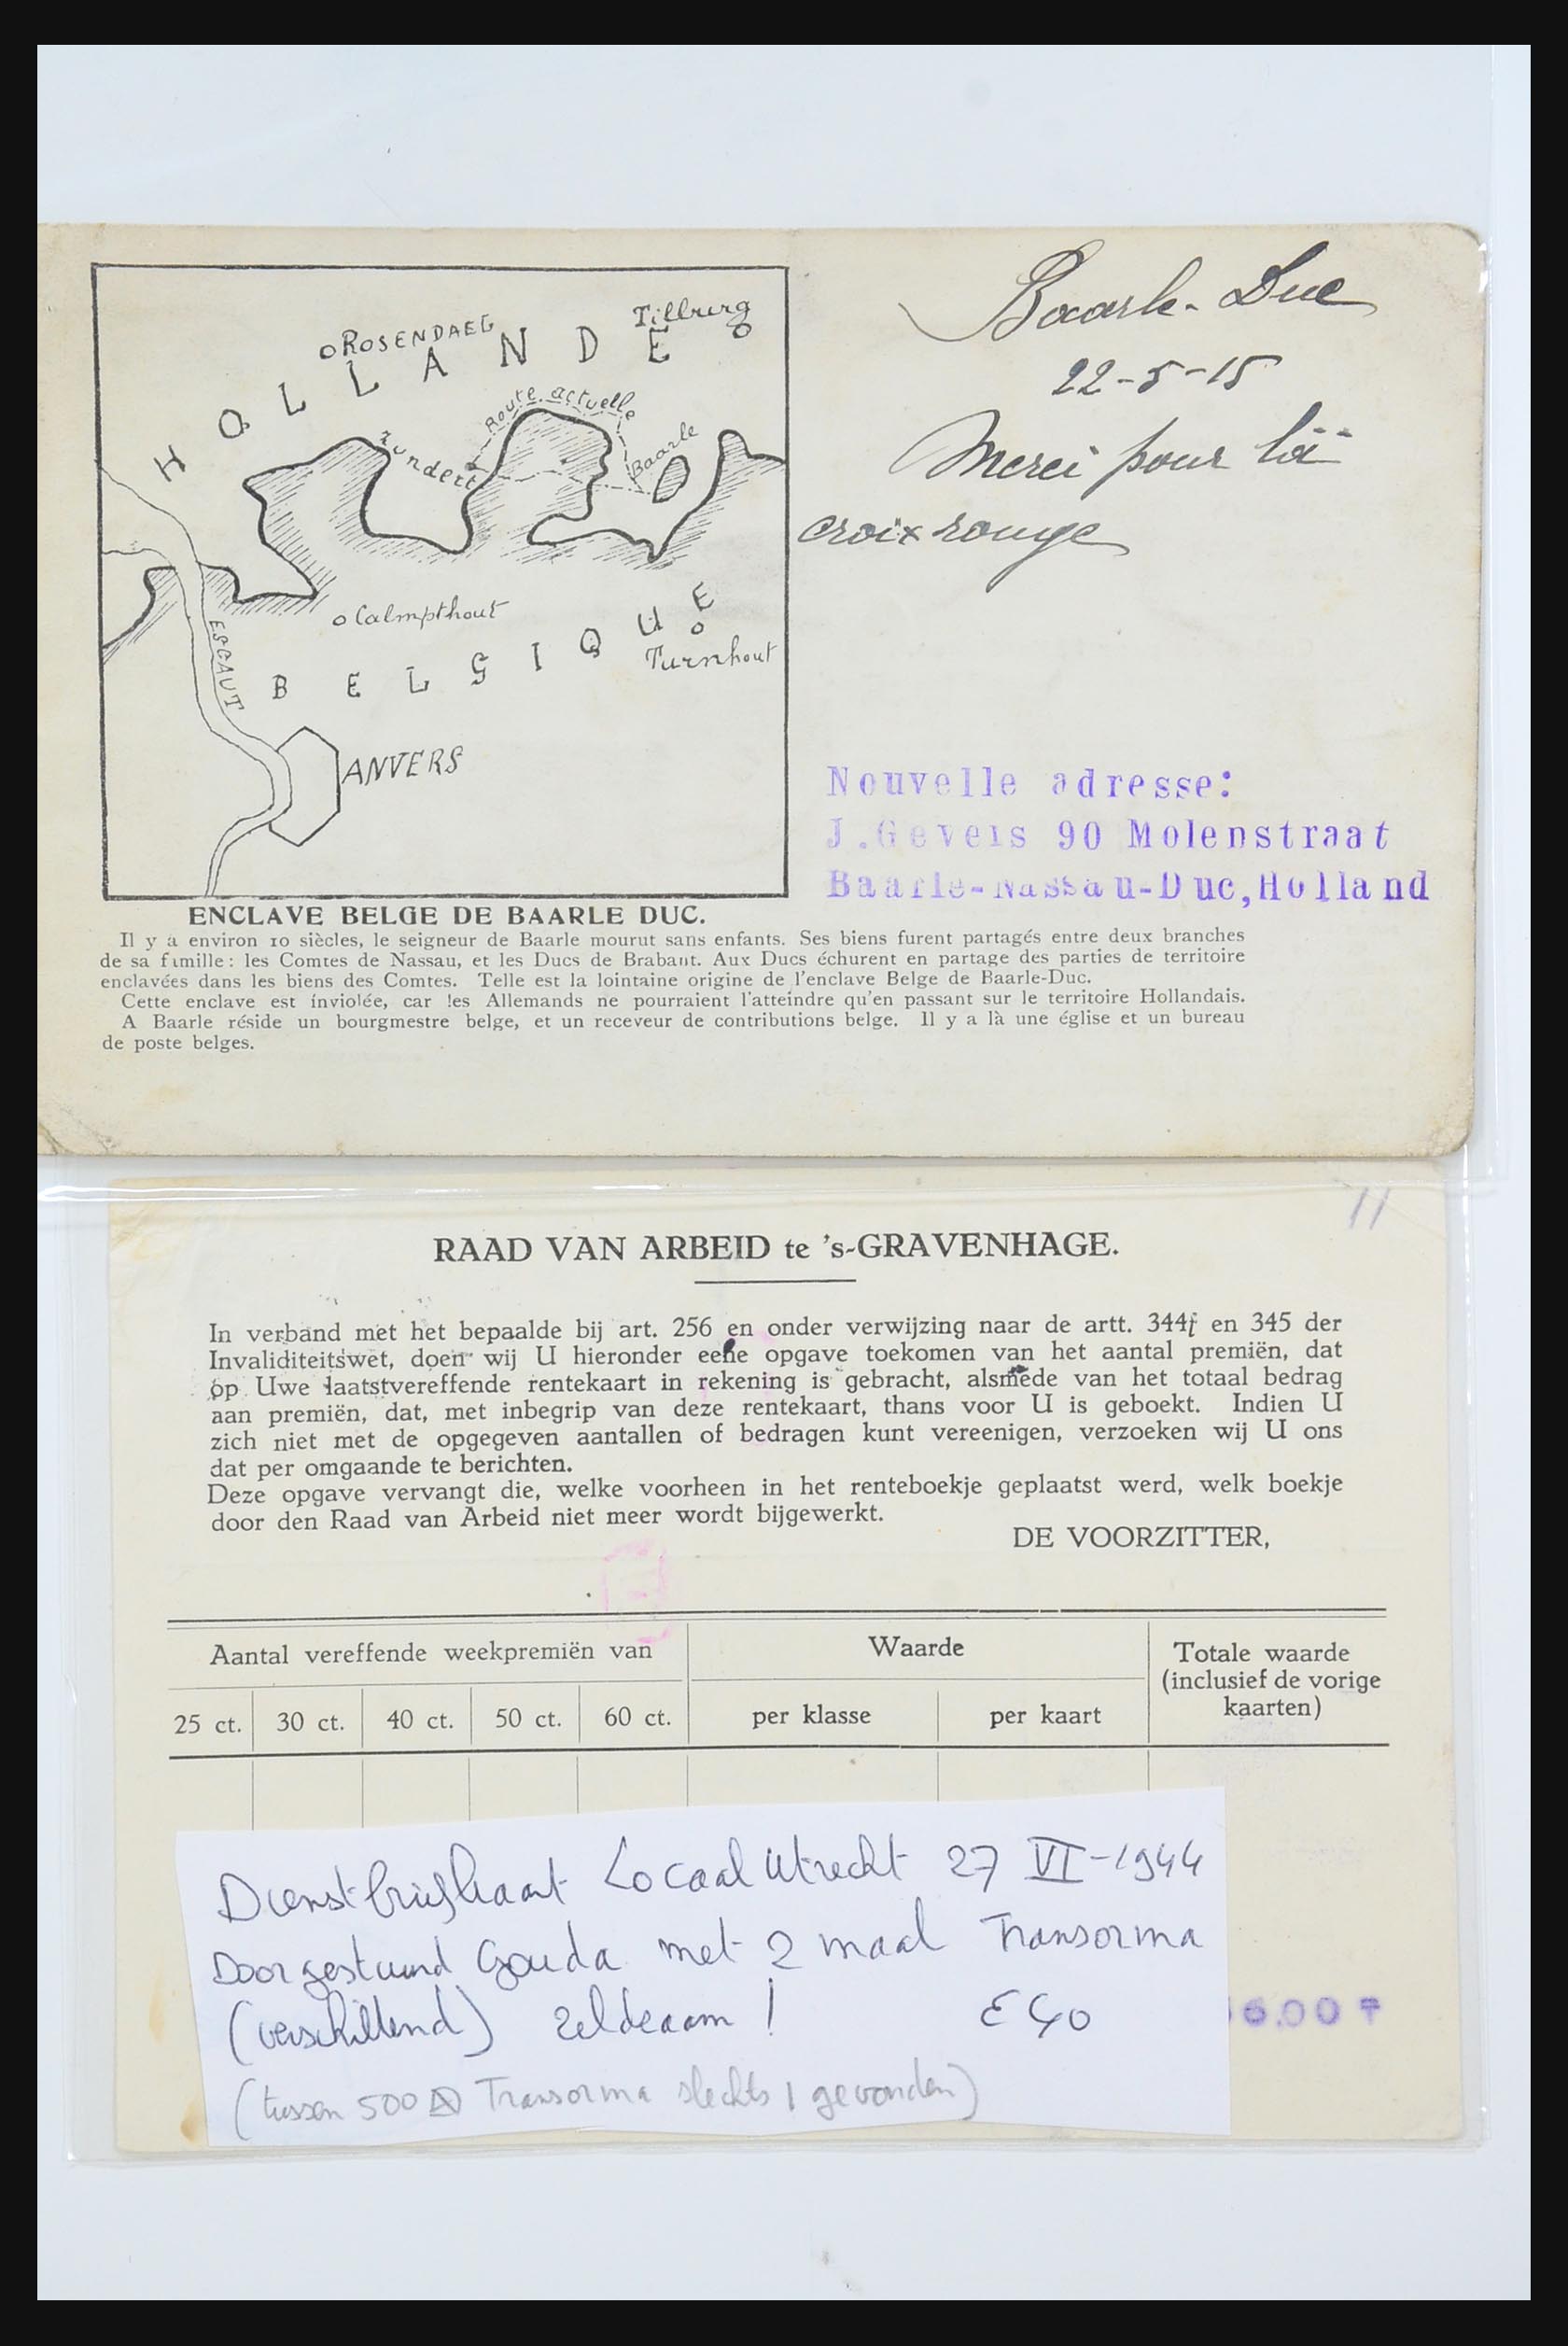 Baarle-Duc
22-5-15
Merci pour là
croix rouge
Tilburg
ROSENDAEG
HOLLANDE
Route actuelle
Zundert
Baarle
Calmpthout
ESCAUT
BELGIQUE
Turnhout
ANVERS
Nouvelle adresse:
J.Gevers 90 Molenstraat
Baarle-Nassau-Duc,Holland
ENCLAVE BELGE DE BAARLE DUC.
Il y a environ 10 siècles, le seigneur de Baarle mourut sans enfants. Ses biens furent partagés entre deux branches
de sa famille : les Comtes de Nassau, et les Ducs de Brabant. Aux Ducs échurent en partage des parties de territoire
enclavées dans les biens des Comtes. Telle est la lointaine origine de l'enclave Belge de Baarle-Duc.
Cette enclave est inviolée, car les Allemands ne pourraient l'atteindre qu'en passant sur le territoire Hollandais.
A Baarle réside un bourgmestre belge, et un receveur de contributions belge. Il y a là une église et un bureau
de poste belges.
11
RAAD VAN ARBEID te 's-GRAVENHAGE.
In verband met het bepaalde bij art. 256 en onder verwijzing naar de artt. 344f en 345 der
Invaliditeitswet, doen wij U hieronder eene opgave toekomen van het aantal premiën, dat
op Uwe laatstvereffende rentekaart in rekening is gebracht, alsmede van het totaal bedrag
aan premiën, dat, met inbegrip van deze rentekaart, thans voor U is geboekt. Indien U
zich niet met de opgegeven aantallen of bedragen kunt vereenigen, verzoeken wij U ons
dat per omgaande te berichten.
Deze opgave vervangt die, welke voorheen in het renteboekje geplaatst werd, welk boekje
door den Raad van Arbeid niet meer wordt bijgewerkt.
DE VOORZITTER,
Aantal vereffende weekpremiën van
Waarde
Totale waarde
(inclusief de vorige
kaarten)
25 ct. 30 ct. 40 ct. 50 ct. 60 ct. per klasse per kaart
Dienstbriefkaart Locaal Utrecht 27 VI-1944
Doorgestuurd Gouda met 2 maal Transorma
(verschillend) zeldzaam! € 40
6.00
(tussen 500 Transorma slechts 1 gevonden)